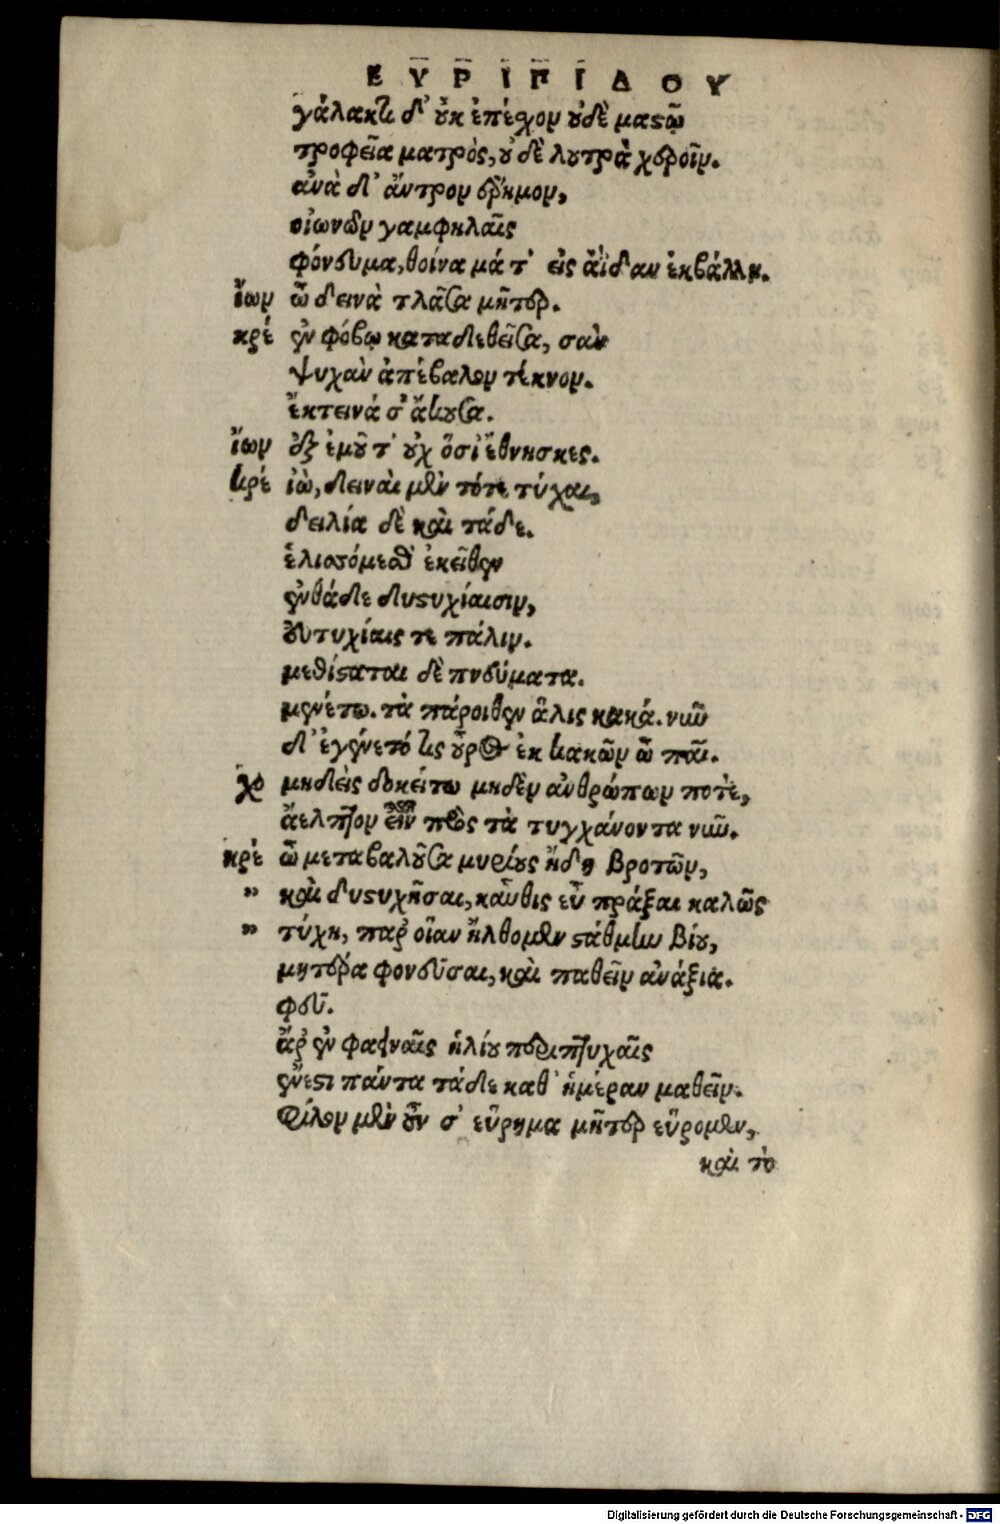 ΕΥΡΙΠΙΔΟΥ
γάλακτι δ' οὐκ ἐπέσχον οὐδὲ μαστῷ
τροφεῖα ματρὸς, οὐδὲ λουτρὰ χεροῖν.
ἀνὰ δ' ἄντρον ἔρημον,
οἰωνῶν γαμφηλαῖς
φόνευμα, θοίνα μά τ' εἰς ἀΐδαν ἐκβάλλῃ.
ἴων ὦ δεινὰ τλᾶσα μῆτερ.
κρέ ἐν φόβῳ καταδεθεῖσα, σὰν
ψυχὰν ἀπέβαλον τέκνον.
ἔκτεινά σ' ἄκουσα.
ἴων ἐξ ἐμοῦ τ' οὐχ ὅσι' ἔθνησκες.
κρέ ἰὼ, δειναὶ μὲν τότε τύχαι,
δειλία δὲ καὶ τάδε.
ἑλισσόμεσθ' ἐκεῖθεν
ἐνθάδε δυστυχίαισιν,
εὐτυχίαις τε πάλιν.
μεθίσταται δὲ πνεύματα.
μενέτω. τὰ πάροιθεν ἅλις κακά. νῦν
δ' ἐγένετό τις οὖρος ἐκ κακῶν ὦ παῖ.
χο μηδεὶς δοκείτω μηδὲν ἀνθρώπων ποτὲ,
ἄελπτον εἶναι πρὸς τὰ τυγχάνοντα νῦν.
κρέ ὦ μεταβαλοῦσα μυρίους ἤδη βροτῶν,
" καὶ δυστυχῆσαι, καὖθις εὖ πράξαι καλῶς
" τύχη, παρ' οἵαν ἤλθομεν στάθμην βίου,
μητέρα φονεῦσαι, καὶ παθεῖν ἀνάξια.
φεῦ.
ἆρ' ἐν φαενναῖς ἡλίου περιπτυχαῖς
ἔνεστι πάντα τάδε καθ' ἡμέραν μαθεῖν.
φίλον μὲν οὖν σ' εὕρημα μῆτερ εὕρομεν,
καὶ τὸ
Digitalisierung gefördert durch die Deutsche Forschungsgemeinschaft - DFG